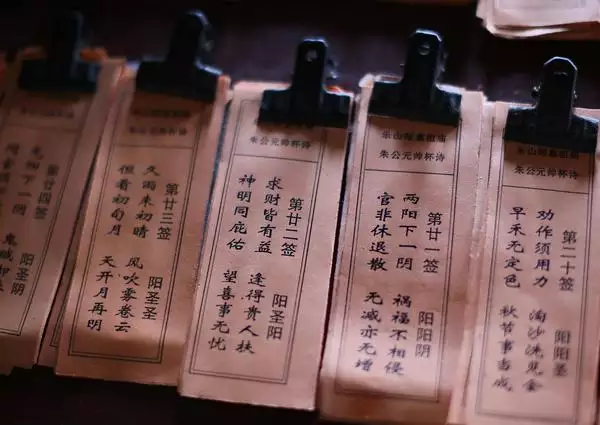 第廿四签 阳圣阴
阳下一阴
朱公元帅杯诗
第廿三签 阴圣圣
久雨未初晴 风吹雾卷云
但看初旬月 天开月再明
朱公元帅杯诗
第廿二签 阳圣阳
求财皆有益 逢得贵人扶
神明同庇佑 望喜事无忧
乐山 祖庙
朱公元帅杯诗
第廿一签 阳阳阴
两阳下一阴 祸福不相侵
官非休退散 无减亦无增
乐山 祖庙
朱公元帅杯诗
第二十签 阳阳圣
劝作须用力 淘沙洗见金
早禾无定色 秋节事当成